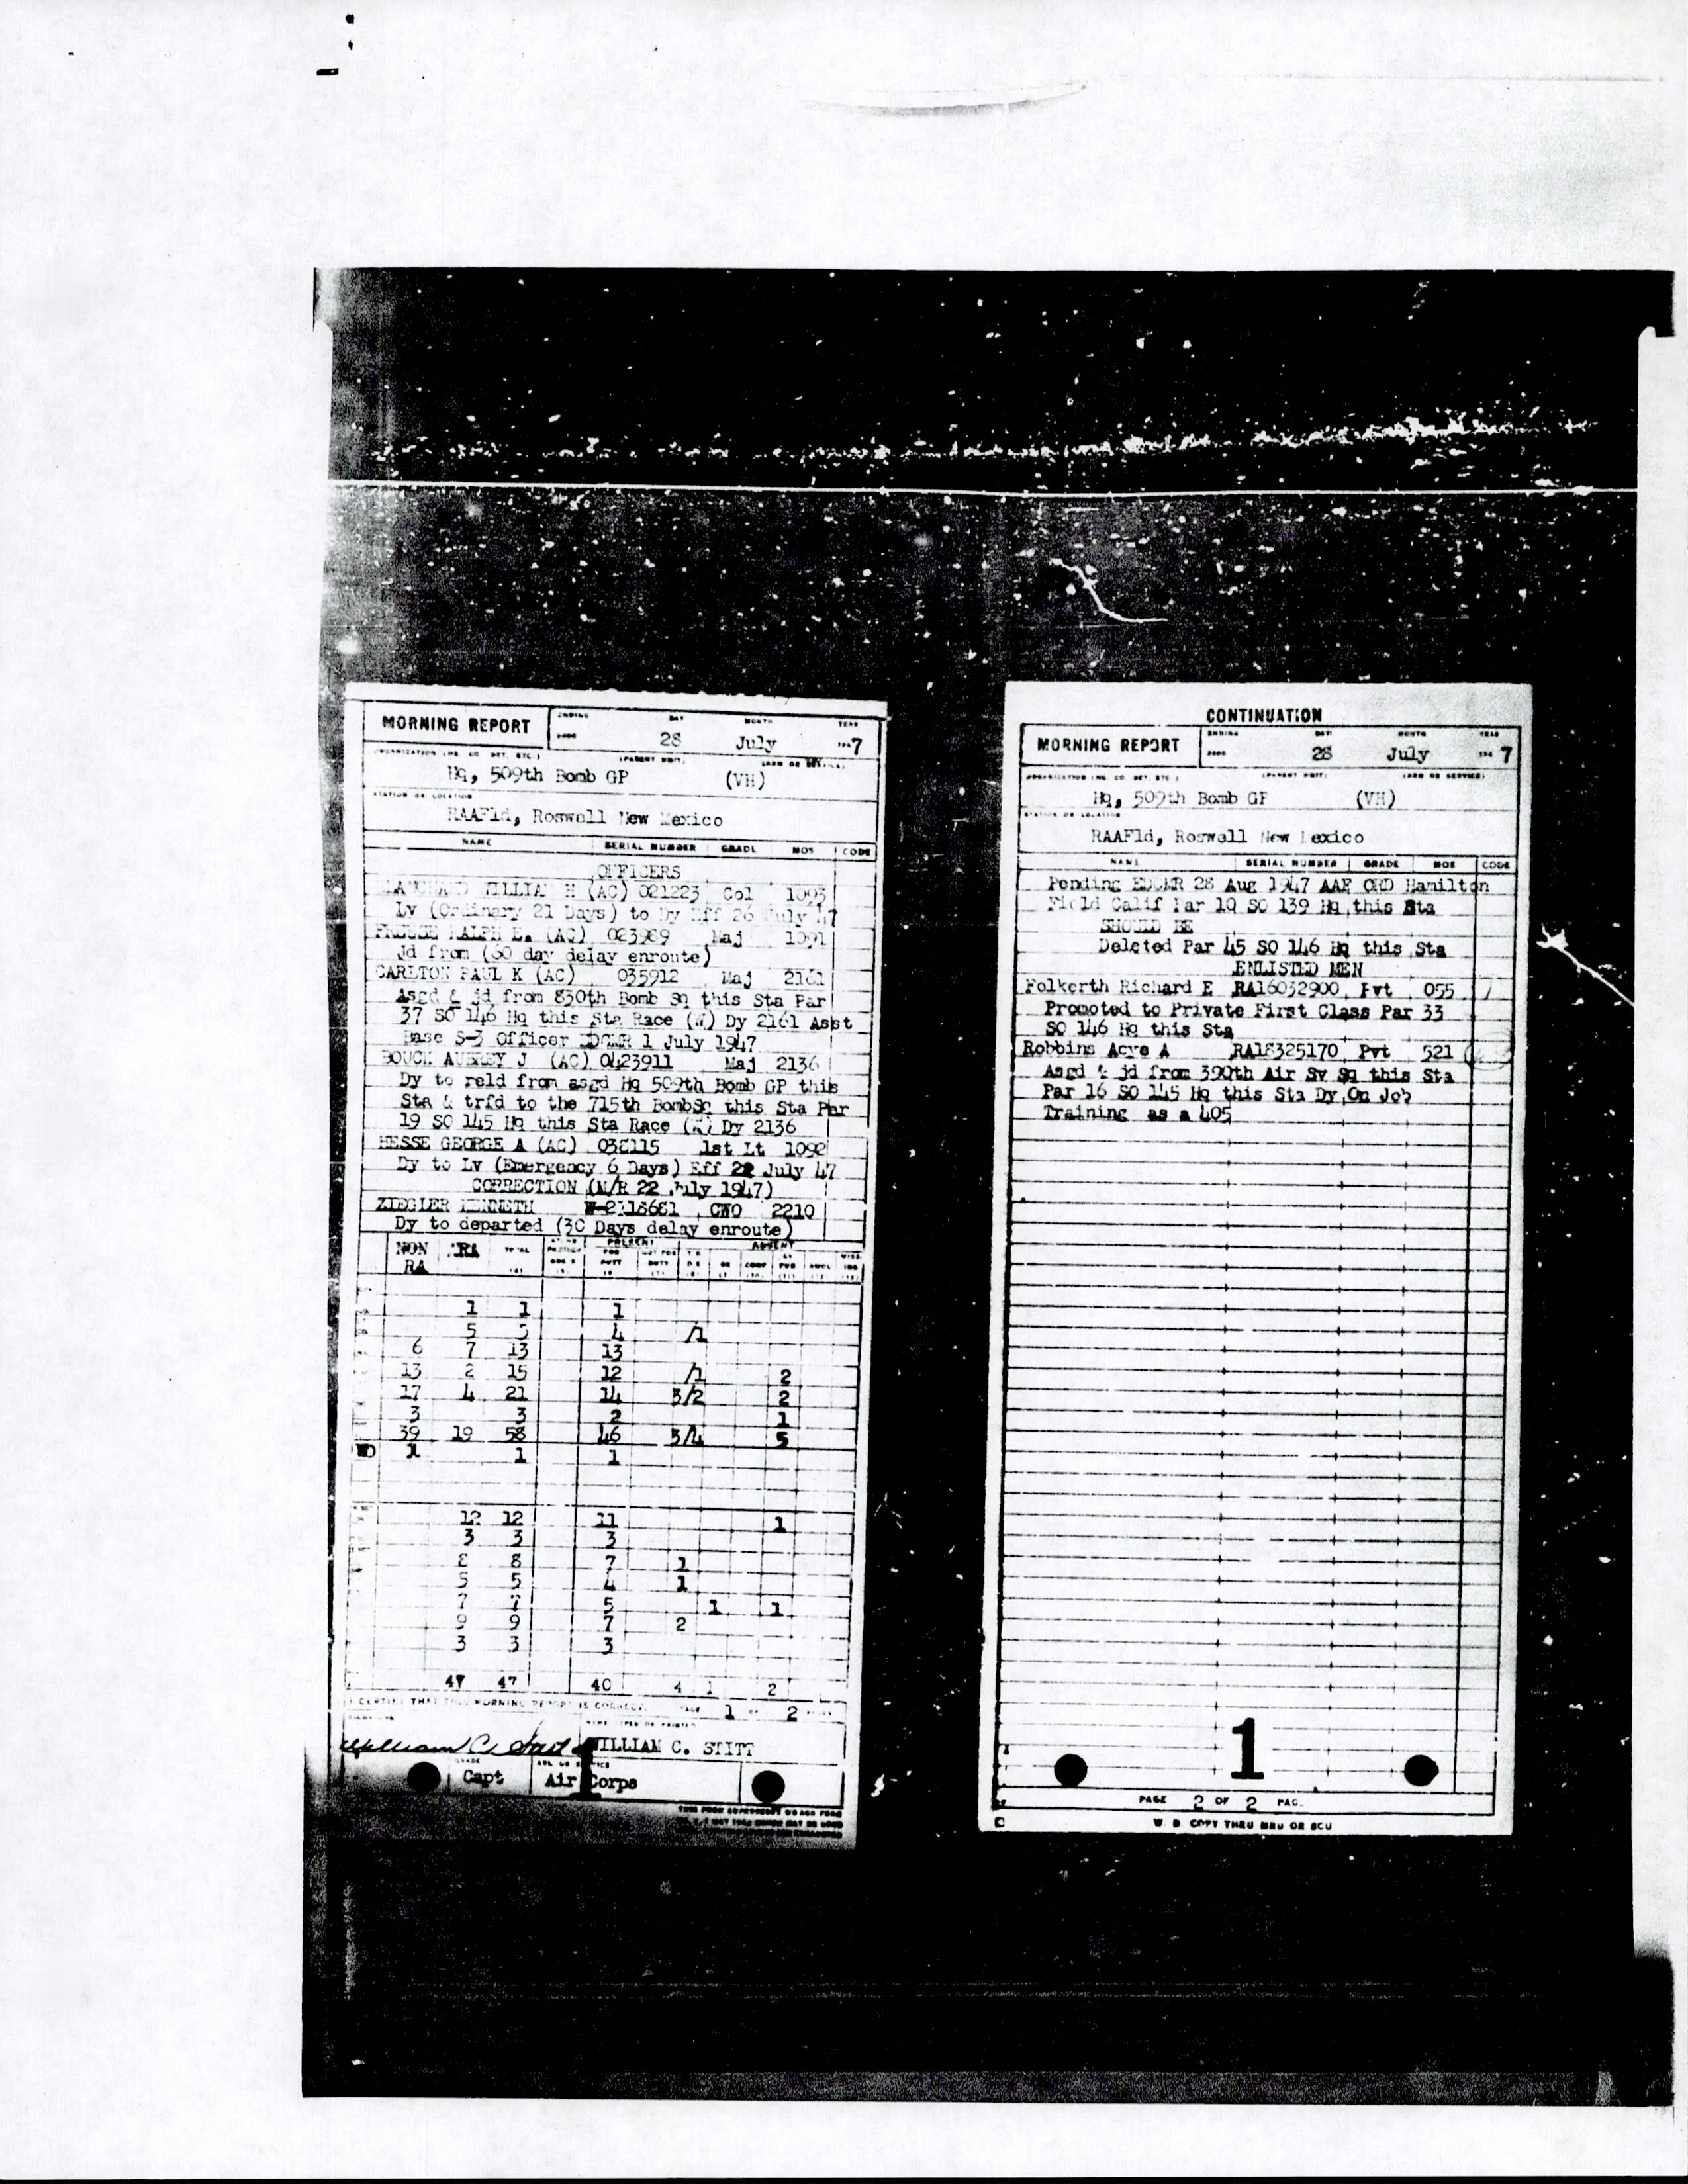 MORNING REPORT
ENDING DAY MONTH YEAR
28 July 1947
ORGANIZATION (HQ. CO. DET. ETC.) (PARENT UNIT) (ARM OR SERVICE)
Hq, 509th Bomb GP (VH)
STATION OR LOCATION
RAAFld, Roswell New Mexico
NAME SERIAL NUMBER GRADE MOS CODE
OFFICERS
BLANCHARD WILLIAM H (AC) 021223 Col 1093
Lv (Ordinary 21 Days) to Dy Eff 26 July 47
RALPH E. (AC) Maj 1091
Jd from (60 day delay enroute)
CARLTON PAUL K (AC) 035912 Maj 2161
Asgd & jd from 830th Bomb Sq this Sta Par
37 SO 146 Hq this Sta Race (W) Dy 2161 Asst
Base S-3 Officer EDCMR 1 July 1947
BOUCK AUBREY J (AC) 0423911 Maj 2136
Dy to reld from asgd Hq 509th Bomb GP this
Sta & trfd to the 715th BombSq this Sta Par
19 SO 145 Hq this Sta Race (W) Dy 2136
HESSE GEORGE A (AC) 038115 1st Lt 1092
Dy to Lv (Emergency 6 Days) Eff 22 July 47
CORRECTION (M/R 22 July 1947)
ZIEGLER KENNETH W-2118681 CWO 2210
Dy to departed (30 Days delay enroute)
NON RA RA TOTAL PRESENT FOR DUTY NOT FOR DUTY ABSENT
1 1 1
5 5 4 /1
6 7 13 13
13 2 15 12 /1 2
17 4 21 14 3/2 2
3 3 2 1
39 19 58 46 3/4 5
WO 1 1 1
12 12 11 1
3 3 3
8 8 7 1
5 5 4 1
7 7 5 1 1
9 9 7 2
3 3 3
47 47 40 4 1 2
I CERTIFY THAT THIS MORNING REPORT IS CORRECT PAGE 1 OF 2 PAGES
SIGNATURE NAME TYPED OR PRINTED
William C. Stitt WILLIAM C. STITT
GRADE
Capt Air Corps
1
CONTINUATION
MORNING REPORT
ENDING DAY MONTH YEAR
28 July 1947
ORGANIZATION (HQ. CO. DET. ETC.) (PARENT UNIT) (ARM OR SERVICE)
Hq, 509th Bomb GP (VH)
STATION OR LOCATION
RAAFld, Roswell New Mexico
NAME SERIAL NUMBER GRADE MOS CODE
Pending EDCMR 28 Aug 1947 AAF ORD Hamilton
Field Calif Par 19 SO 139 Hq this Sta
SHOULD BE
Deleted Par 45 SO 146 Hq this Sta
ENLISTED MEN
Folkerth Richard E RA16032900 Pvt 055
Promoted to Private First Class Par 33
SO 146 Hq this Sta
Robbins Acye A RA18325170 Pvt 521
Asgd & jd from 390th Air Sv Sq this Sta
Par 16 SO 145 Hq this Sta Dy On Job
Training as a 405
1
PAGE 2 OF 2 PAG.
W. D. COPY THRU MRU OR SCU